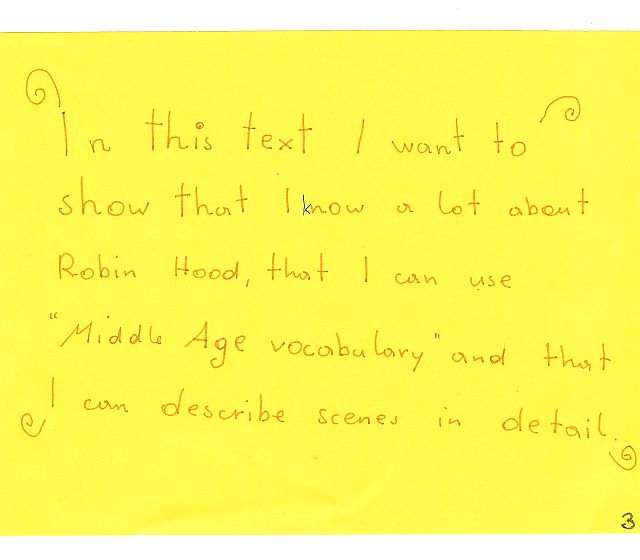 In this text I want to
show that I know a lot about
Robin Hood, that I can use
"Middle Age vocabulary" and that
I can describe scenes in detail.
3